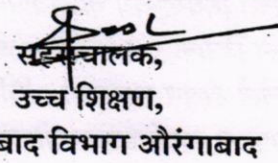 सहसंचालक,
उच्च शिक्षण,
बाद विभाग औरंगाबाद